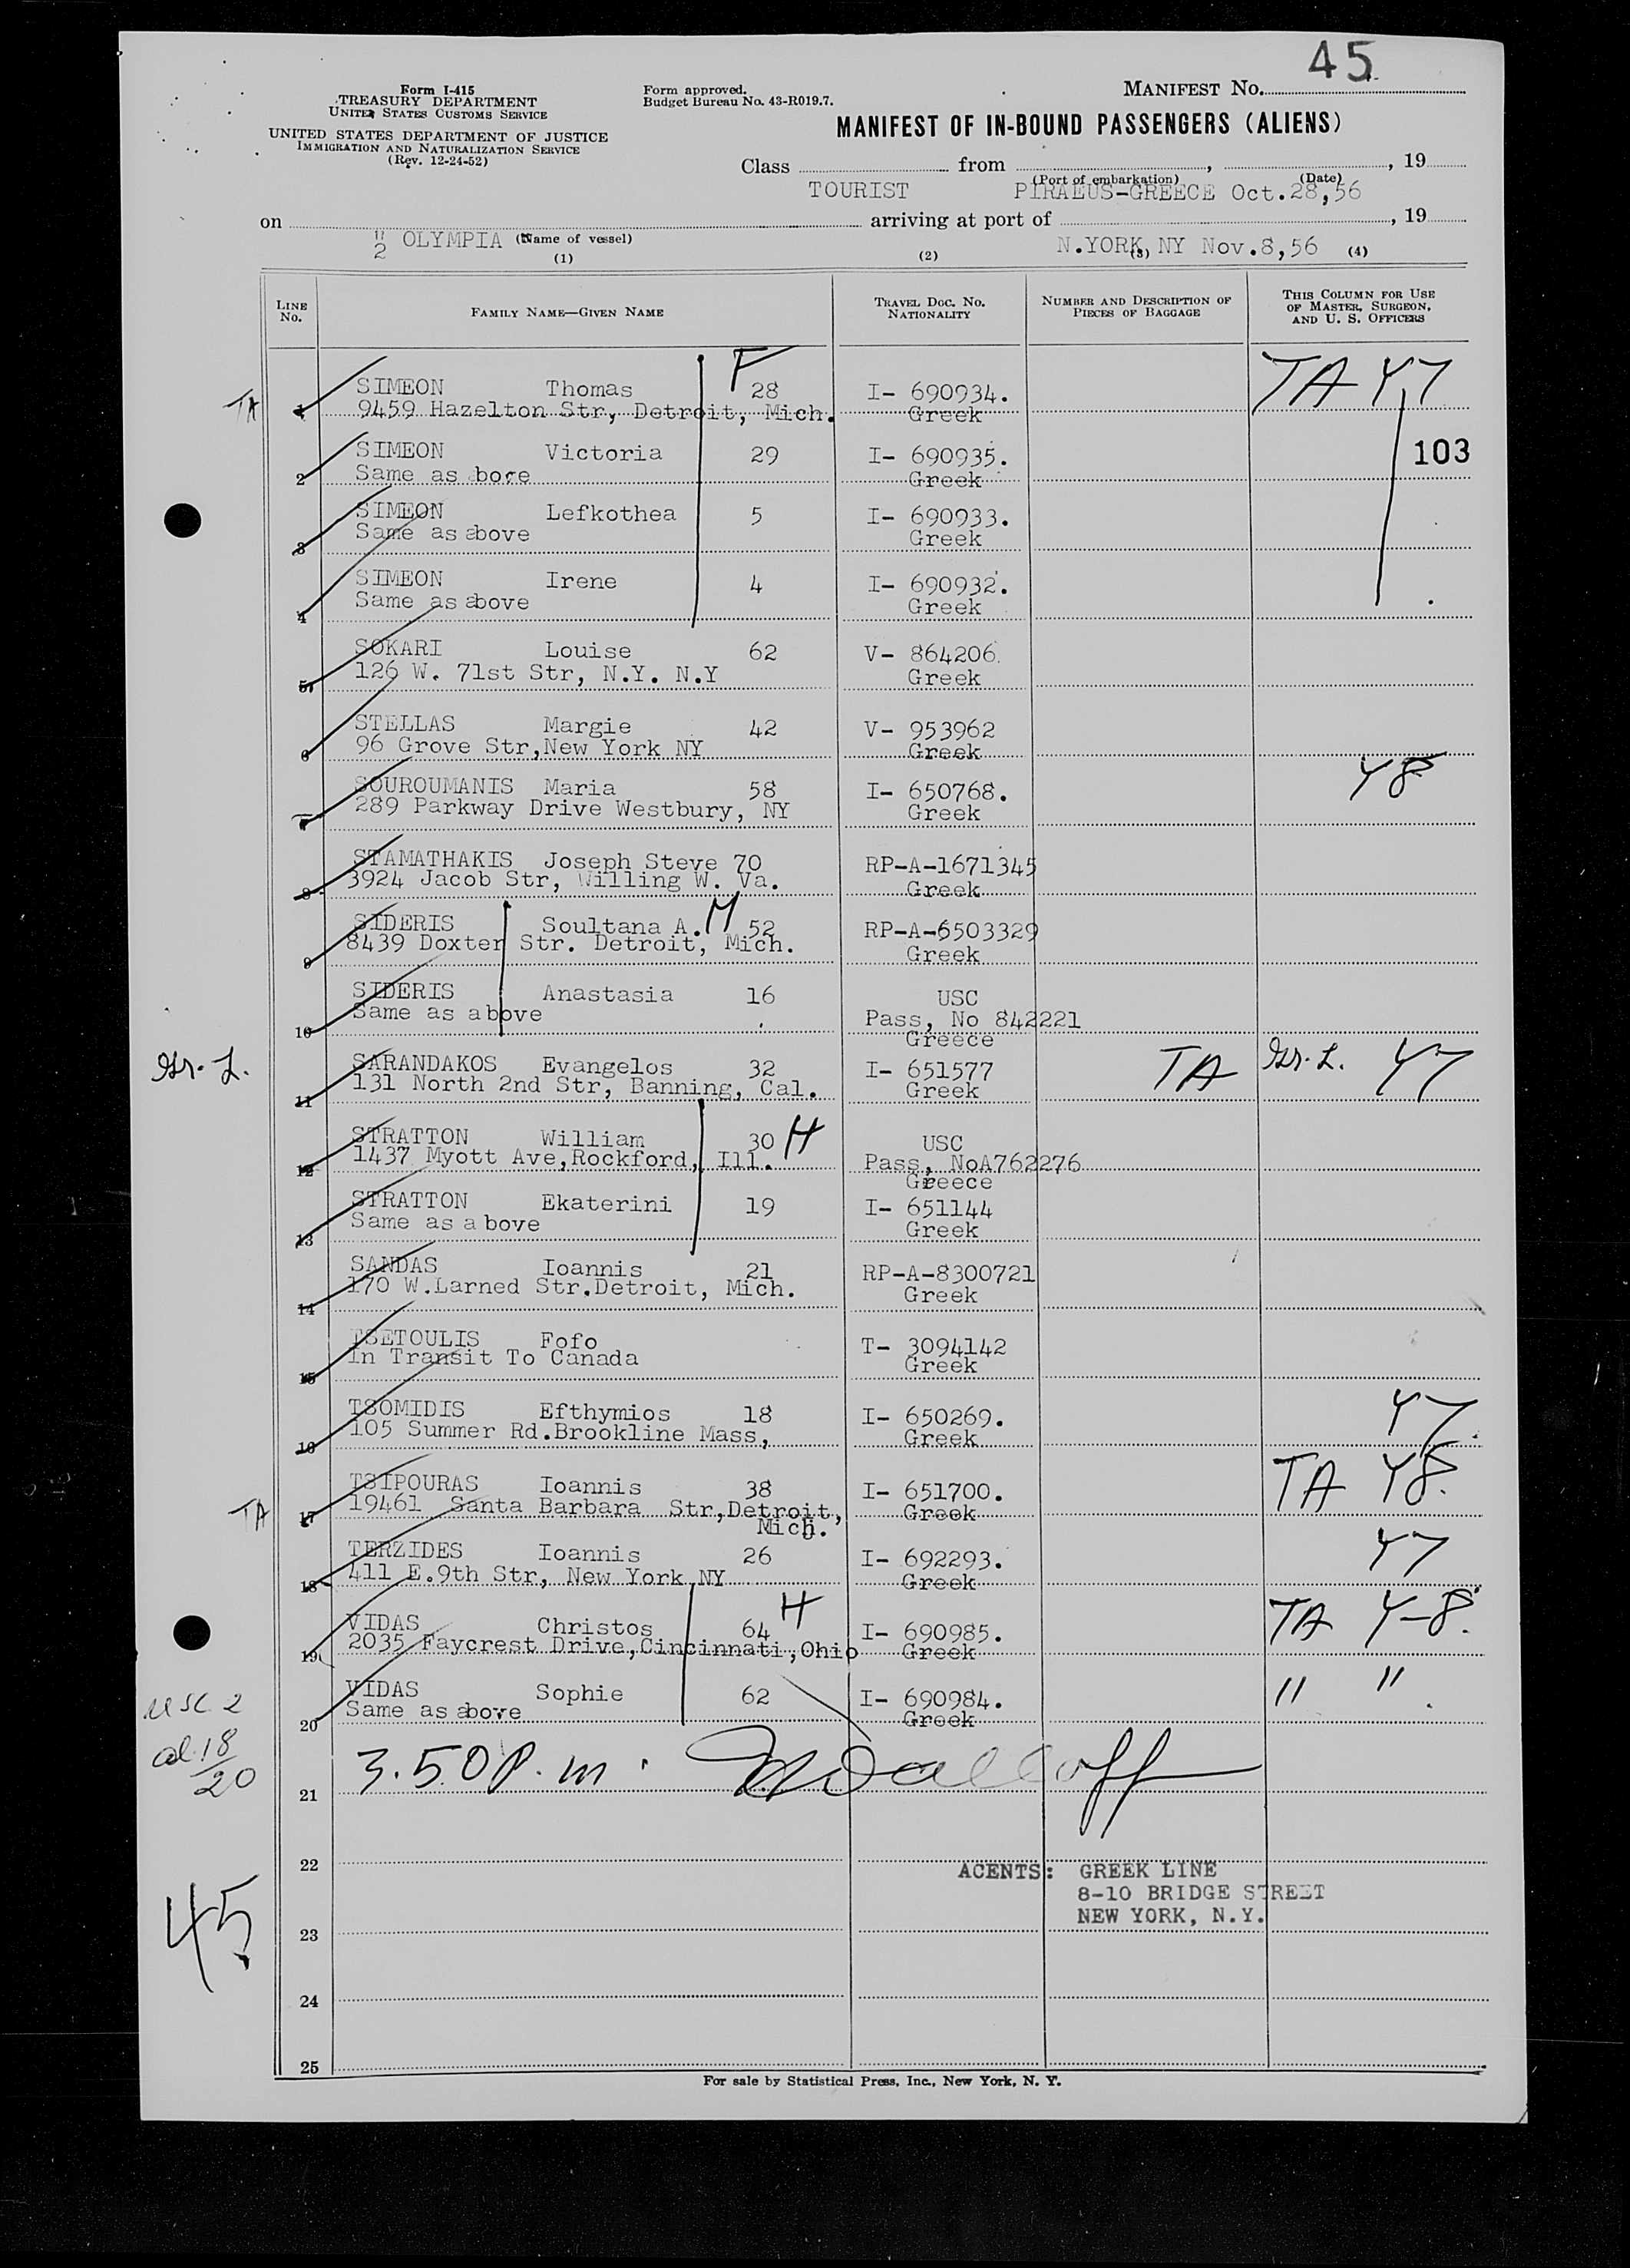 45
Form I-415
TREASURY DEPARTMENT
UNITED STATES CUSTOMS SERVICE
UNITED STATES DEPARTMENT OF JUSTICE
IMMIGRATION AND NATURALIZATION SERVICE
(Rev. 12-24-52)
Form approved.
Budget Bureau No. 43-R019.7.
MANIFEST NO.
MANIFEST OF IN-BOUND PASSENGERS (ALIENS)
Class from , , 19
(Port of embarkation) (Date)
TOURIST PIRAEUS-GREECE Oct.28,56
on arriving at port of , 19
OLYMPIA (Name of vessel) N.YORK, NY Nov.8,56
(1) (2) (3) (4)
LINE NO. FAMILY NAME—GIVEN NAME TRAVEL DOC. NO. NATIONALITY NUMBER AND DESCRIPTION OF PIECES OF BAGGAGE THIS COLUMN FOR USE OF MASTER, SURGEON, AND U. S. OFFICERS
F TA Y7
SIMEON Thomas 28 I- 690934.
TA 1 9459 Hazelton Str, Detroit, Mich. Greek
103
SIMEON Victoria 29 I- 690935.
2 Same as bove Greek
SIMEON Lefkothea 5 I- 690933.
3 Same as above Greek
SIMEON Irene 4 I- 690932.
4 Same as above Greek
SOKARI Louise 62 V- 864206.
5 126 W. 71st Str, N.Y. N.Y Greek
STELLAS Margie 42 V- 953962
6 96 Grove Str,New York NY Greek
SOUROUMANIS Maria 58 I- 650768. Y8
7 289 Parkway Drive Westbury, NY Greek
STAMATHAKIS Joseph Steve 70 RP-A-1671345
8 3924 Jacob Str, Willing W. Va. Greek
SIDERIS Soultana A. M 52 RP-A-6503329
9 8439 Doxter Str. Detroit, Mich. Greek
SIDERIS Anastasia 16 USC
10 Same as above Pass, No 842221
Greece
Gr. L. SARANDAKOS Evangelos 32 I- 651577 TA Gr. L. Y7
11 131 North 2nd Str, Banning, Cal. Greek
STRATTON William 30 H USC
12 1437 Myott Ave,Rockford, Ill. Pass, NoA762276
Greece
STRATTON Ekaterini 19 I- 651144
13 Same as above Greek
SANDAS Ioannis 21 RP-A-8300721
14 170 W.Larned Str.Detroit, Mich. Greek
TSETOULIS Fofo T- 3094142
15 In Transit To Canada Greek
TSOMIDIS Efthymios 18 I- 650269. Y7
16 105 Summer Rd.Brookline Mass, Greek
TSIPOURAS Ioannis 38 I- 651700. TA Y8.
TA 17 19461 Santa Barbara Str,Detroit, Greek
Mich.
TERZIDES Ioannis 26 I- 692293. Y7
18 411 E.9th Str, New York NY Greek
VIDAS Christos 64 H I- 690985. TA Y-8.
19 2035 Faycrest Drive,Cincinnati,Ohio Greek
VIDAS Sophie 62 I- 690984. " "
20 Same as above Greek
USC 2
al. 18
20
3.50 P.m.
21
22
AGENTS: GREEK LINE
8-10 BRIDGE STREET
NEW YORK, N.Y.
45
23
24
25
For sale by Statistical Press, Inc., New York, N. Y.